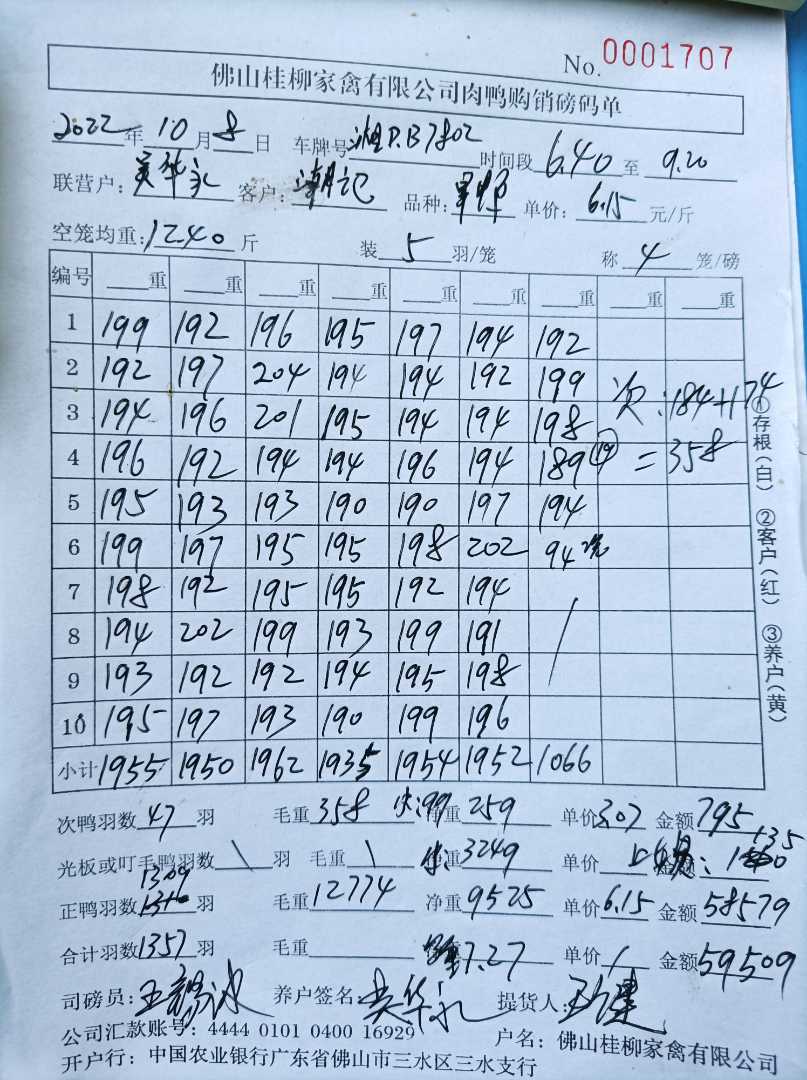 No. 0001707
佛山桂柳家禽有限公司肉鸭购销磅码单
2022年10月8日 车牌号湘D.B7802 时间段6.40至9.20
联营户:吴华永 客户:潮记 品种: 单价:6.15元/斤
空笼均重:12.40斤 装5羽/笼 称4笼/磅
编号 重 重 重 重 重 重 重 重 重
1 199 192 196 195 197 194 192
2 192 197 204 194 194 192 199
次:184+174
3 194 196 201 195 194 194 198
4 196 192 194 194 196 194 189 (19) =358
5 195 193 193 190 190 197 194
6 199 197 195 195 198 202 94
7 198 192 195 195 192 194
8 194 202 199 193 199 191
9 193 192 192 194 195 198
10 195 197 193 190 199 196
小计 1955 1950 1962 1935 1954 1952 1066
①存根(白) ②客户(红) ③养户(黄)
次鸭羽数47羽 毛重358 99 净重259 单价3.07 金额795
光板或叮毛鸭羽数\羽 毛重\ 3249 单价 135
1309
正鸭羽数羽 毛重12774 净重9525 单价6.15 金额58579
合计羽数1357羽 毛重 7.27 单价/ 金额59509
司磅员: 养户签名:吴华永 提货人:
公司汇款账号:4444 0101 0400 16929 户名:佛山桂柳家禽有限公司
开户行:中国农业银行广东省佛山市三水区三水支行